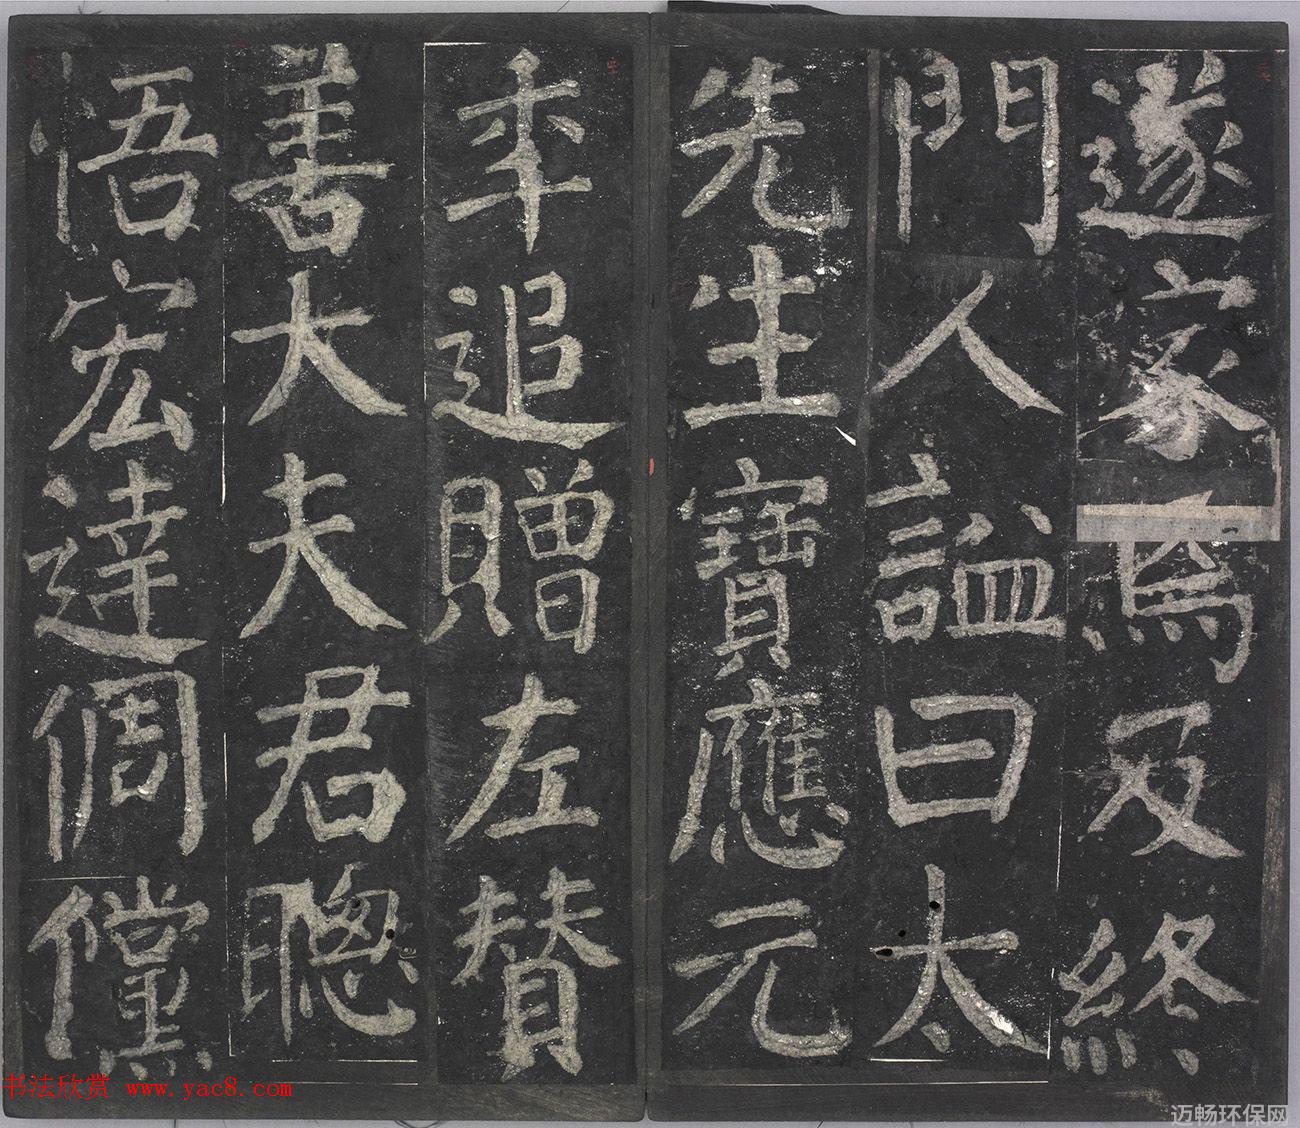 遂家焉及終
門人謚曰太
先生寶應元
年追贈左賛
善大夫君聰
悟宏達倜儻
书法欣赏 www.yac8.com
迈畅环保网